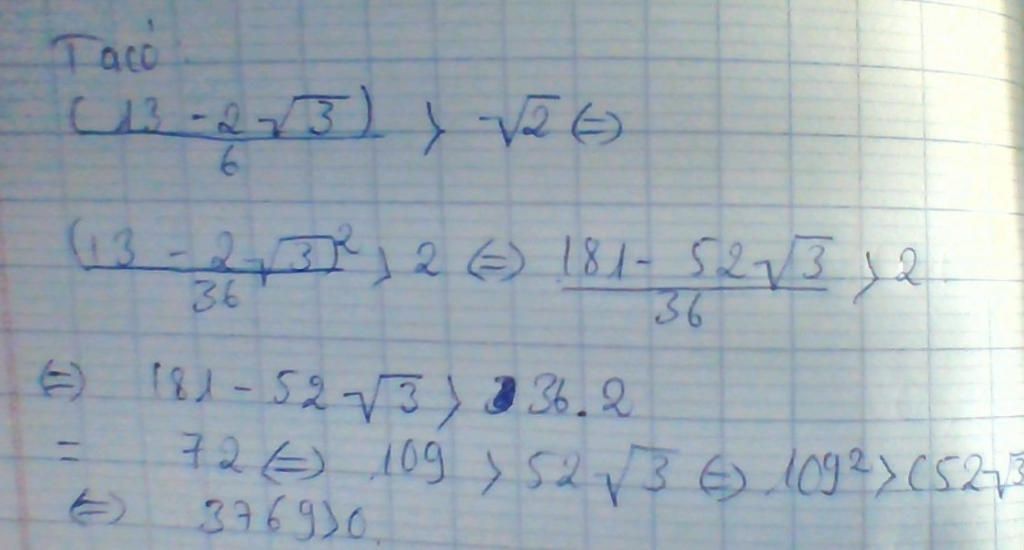 Ta có
(13 - 2√3)/6 > √2 <=>
(13 - 2√3)²/36 > 2 <=> (181 - 52√3)/36 > 2
<=> 181 - 52√3 > 36.2
= 72 <=> 109 > 52√3 <=> 109² > (52√3
<=> 3769>0.